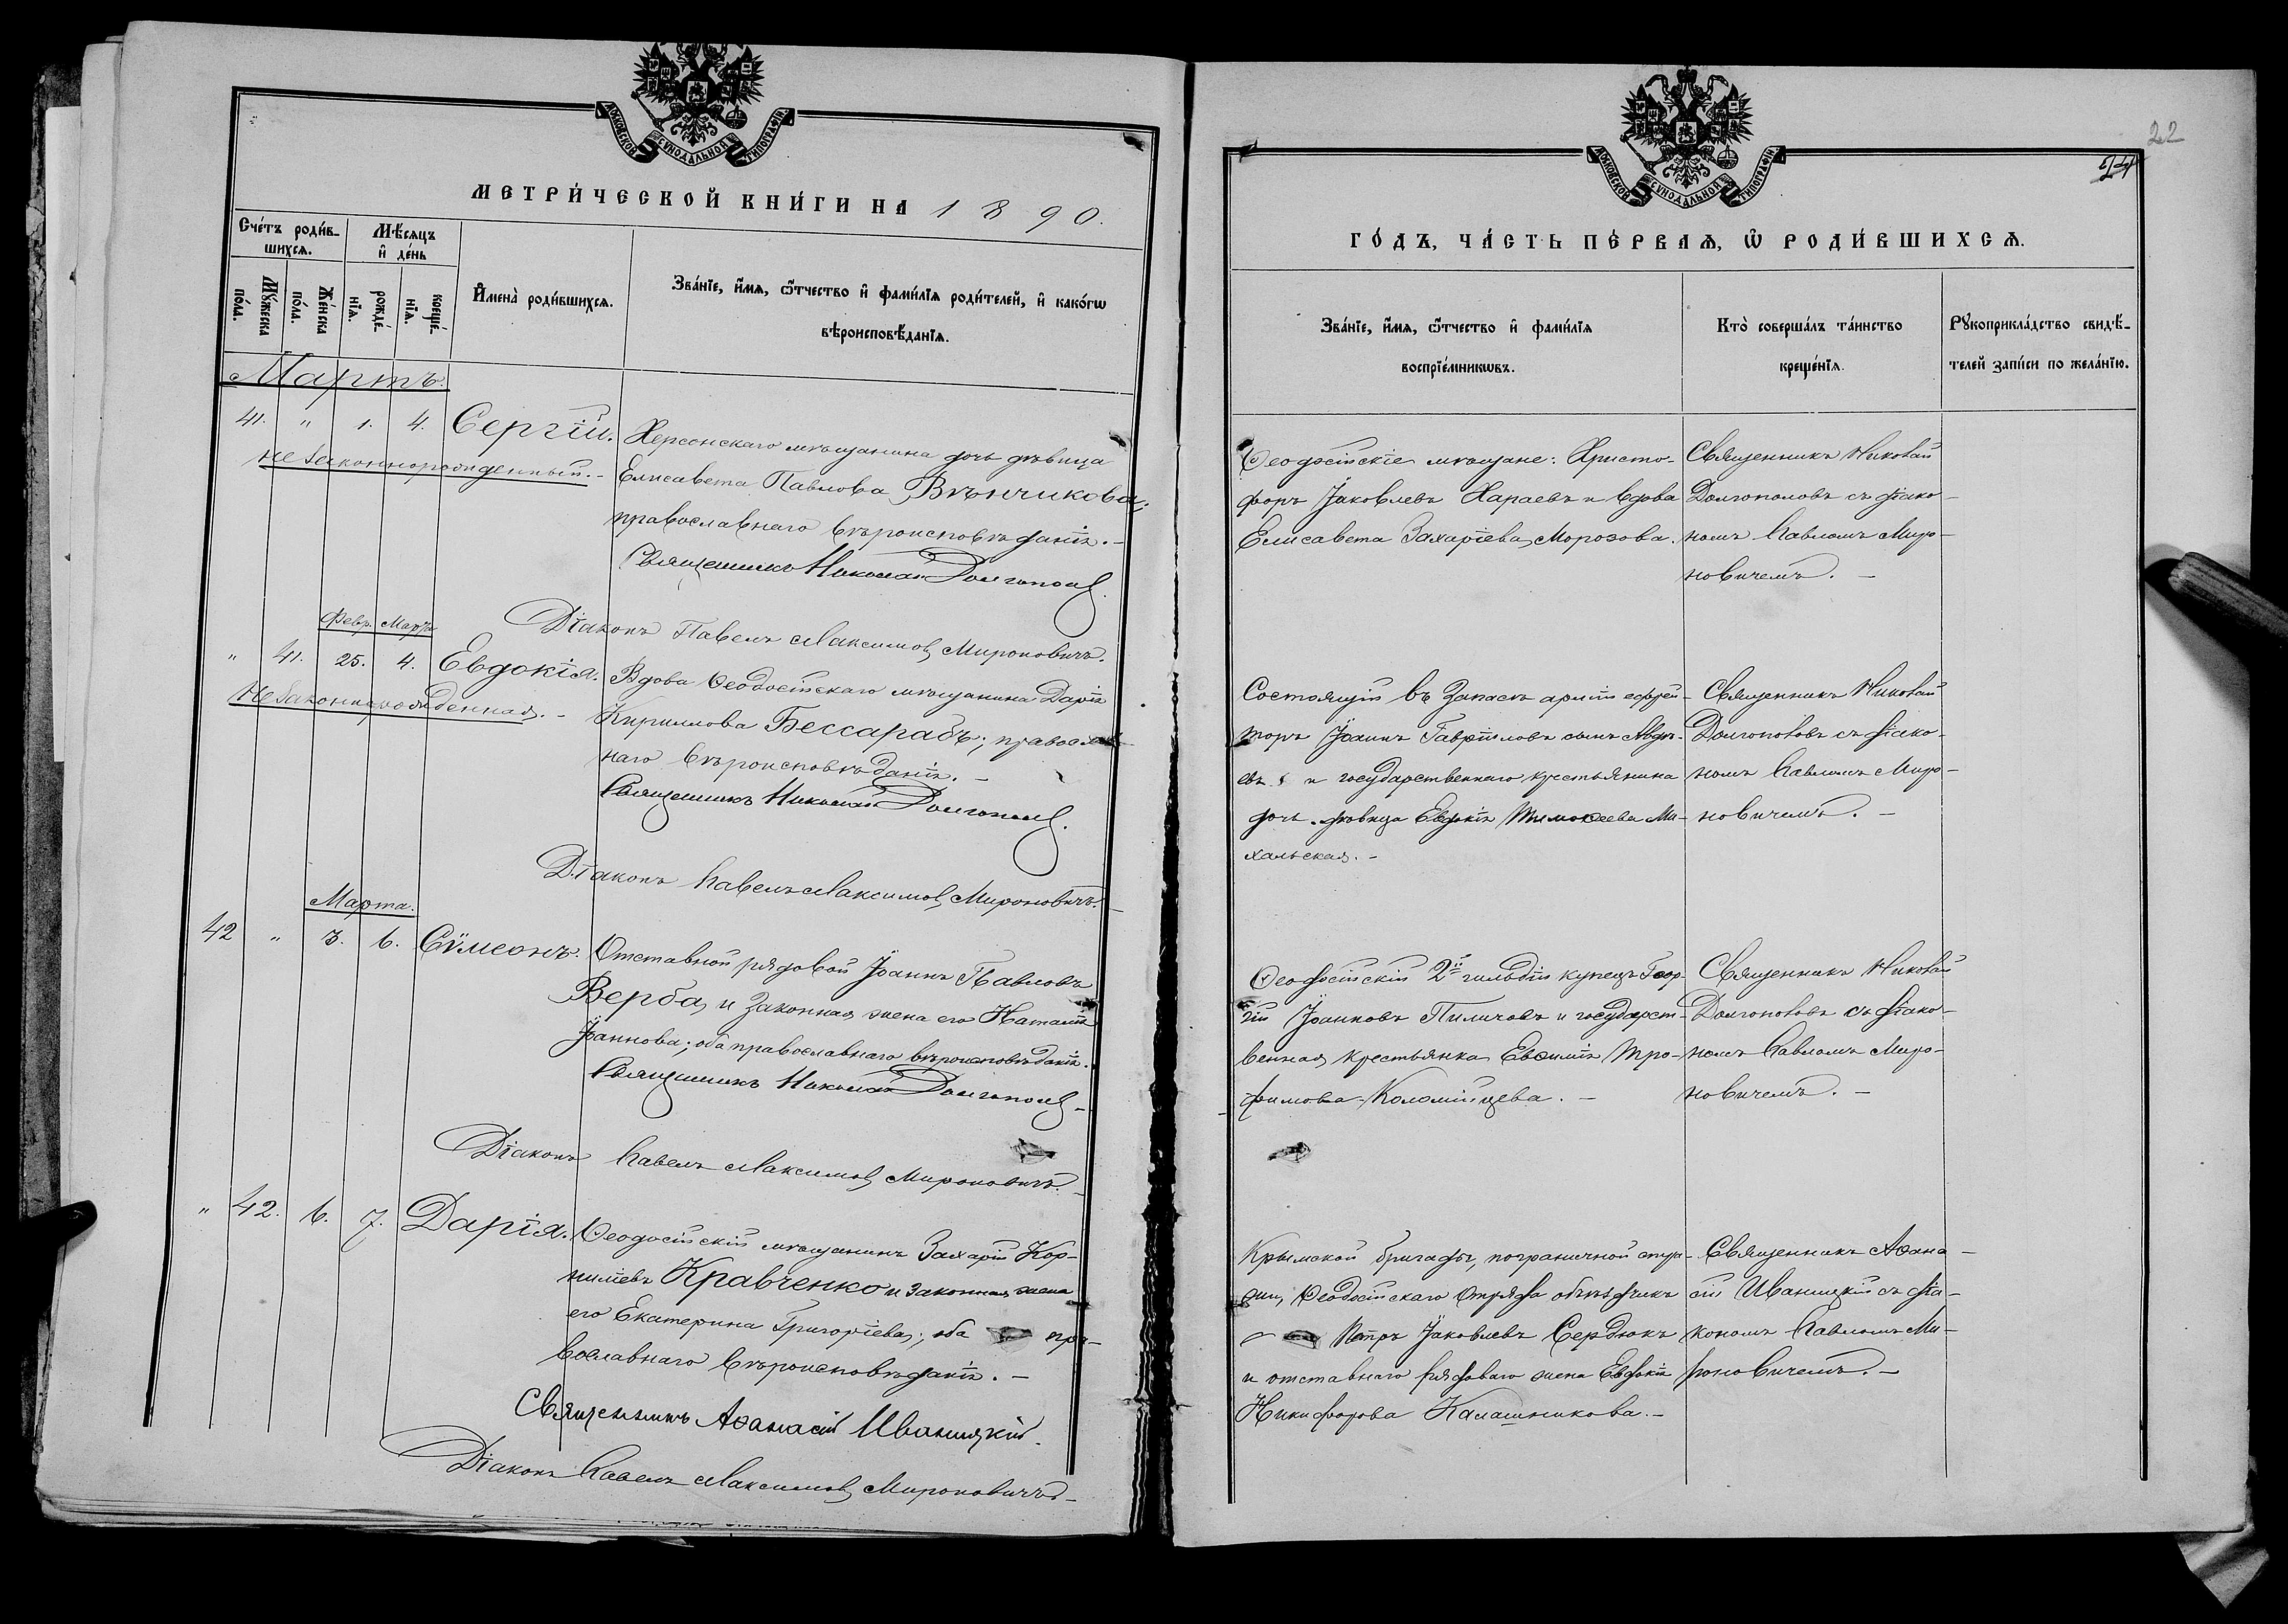 МОСКОВСКОЙ СУНОДАЛЬНОЙ ТИПОГРАФІИ
МЕТРИ́ЧЕСКОЙ КНИ́ГИ НА 1890.
Сче́тъ роди́в-
шихся.
Мѣ́сяцъ
и҆ де́нь
Мꙋ́жеска
по́ла.
Же́нска
по́ла.
рожде́-
нїѧ.
креще́-
нїѧ.
И҆мена̀ роди́вшихсѧ.
Зва́нїе, и҆́мѧ, ѻ҆́тчество и҆ фами́лїѧ роди́телей, и҆ како́гѡ
вѣроисповѣ́данїѧ.
Мартъ.
41. " 1. 4. Сергій. Херсонскаго мѣщанина дочь дѣвица
незаконнорожденный.- Елисавета Павлова Вѣнчикова,
православнаго вѣроисповѣданія.-
Священникъ Николай Долгополов.
Діаконъ Павелъ Максимов Мироновичъ.
Февр. Марта
" 41. 25. 4. Евдокія. Вдова Ѳеодосійскаго мѣщанина Дарія
Незаконнорожденная.- Кириллова Бессарабъ; православ-
наго вѣроисповѣданія.-
Священникъ Николай Долгополов.
Діаконъ Павелъ Максимов Мироновичъ.-
Марта.
42 " 3. 6. Сѵмеонъ. Отставной рядовой Іоаннъ Павловъ
Верба, и законная жена его Наталія
Іоаннова; оба православнаго вѣроисповѣданія.
Священникъ Николай Долгополов-
Діаконъ Павелъ Максимов Мироновичъ.-
" 42. 6. 7. Дарія. Ѳеодосійскій мѣщанинъ Захарій Кор-
ниліевъ Кравченко и законная жена
его Екатерина Григоріева; оба пра-
вославнаго вѣроисповѣданія.-
Священникъ Аѳанасій Иваницкій.
Діаконъ Павелъ Максимов Мироновичъ-
22
МОСКОВСКОЙ СУНОДАЛЬНОЙ ТИПОГРАФІИ
ГО́ДЪ, ЧА́СТЬ ПЕ́РВАѦ, Ѡ҆ РОДИ́ВШИХСѦ.
Зва́нїе, и҆́мѧ, ѻ҆́тчество и҆ фами́лїѧ
воспрїе́мникѡвъ.
Кто̀ соверша́лъ та́инство
креще́нїѧ.
Рꙋкоприкла́дство свидѣ́-
телей за́писи по жела́нїю.
Ѳеодосійскіе мѣщане: Христо-
форъ Іаковлевъ Хараевъ и вдова
Елисавета Захаріева Морозова.
Священникъ Николай
Долгополовъ съ діако-
номъ Павломъ Миро-
новичемъ.-
Состоящій въ запасѣ арміи ефрей-
торъ Іоаннъ Гавріиловъ сынъ Авдѣ-
евъ и государственнаго крестьянина
дочь дѣвица Евдокія Тимоѳеева Ми-
хальская.-
Священникъ Николай
Долгополовъ съ діако-
номъ Павломъ Миро-
новичемъ.-
Ѳеодосійскій 2й гильдіи купецъ Геор-
гій Іоанновъ Пиличовъ и государст-
венная крестьянка Евѳимія Тро-
фимова Коломійцева.-
Священникъ Николай
Долгополовъ съ діако-
номъ Павломъ Миро-
новичемъ.-
Крымской бригады, пограничной стра-
жи, Ѳеодосійскаго отряда объѣздчикъ
Петръ Іаковлевъ Сердюкъ
и отставнаго рядоваго жена Евдокія
Никифорова Калашникова.-
Священникъ Аѳана-
сій Иваницкій съ діа-
кономъ Павломъ Ми-
роновичемъ.-